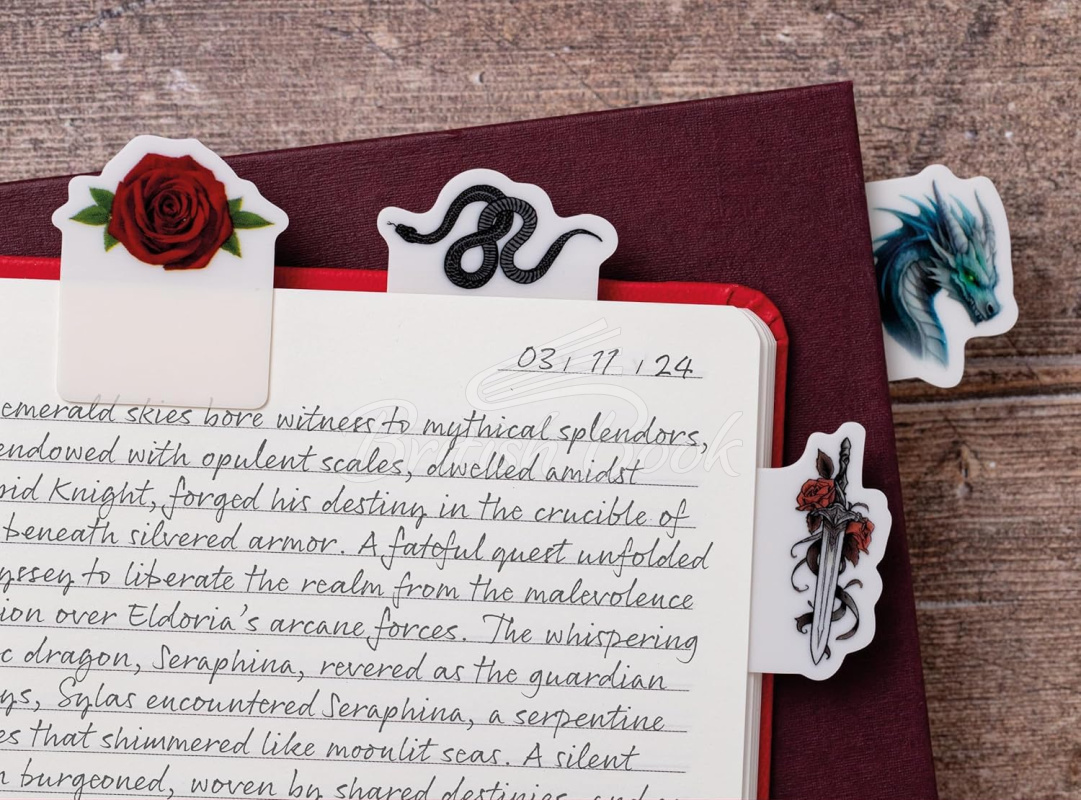 03 / 11 / 24
emerald skies bore witness to mythical splendors,
endowed with opulent scales, dwelled amidst
Knight, forged his destiny in the crucible of
beneath silvered armor. A fateful quest unfolded
to liberate the realm from the malevolence
over Eldoria's arcane forces. The whispering
dragon, Seraphina, revered as the guardian
Sylas encountered Seraphina, a serpentine
that shimmered like moonlit seas. A silent
burgeoned, woven by shared destinies, and
British Book